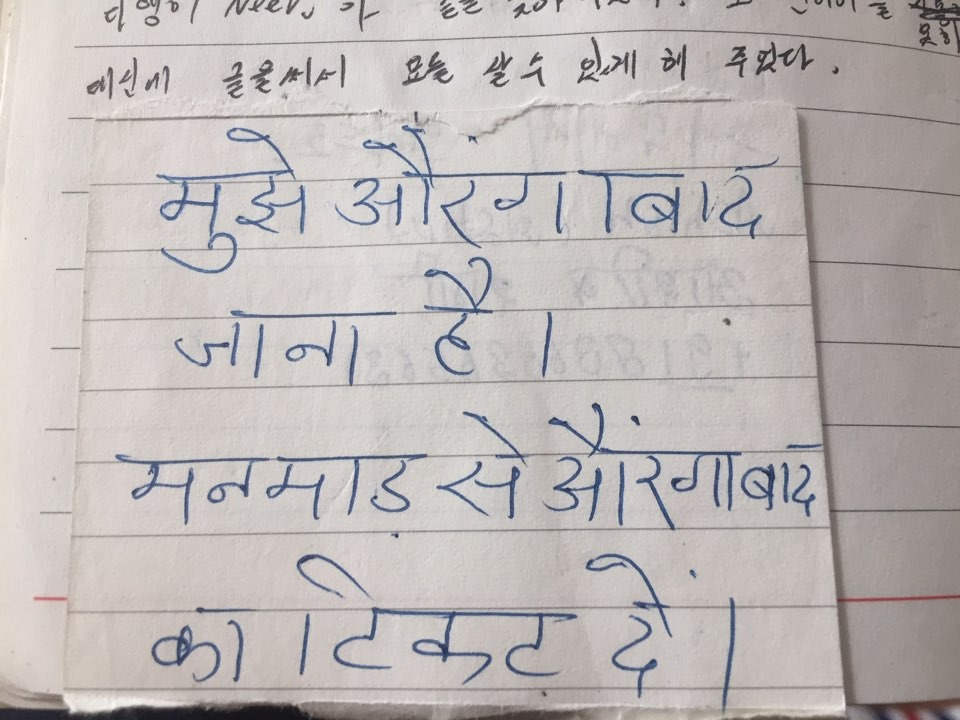 다행히
대신에 글을써서 오늘 살 수 있게 해 주었다.
मुझे औरंगाबाद
जाना है।
मनमाड़ से औरंगाबाद
का टिकट दें।